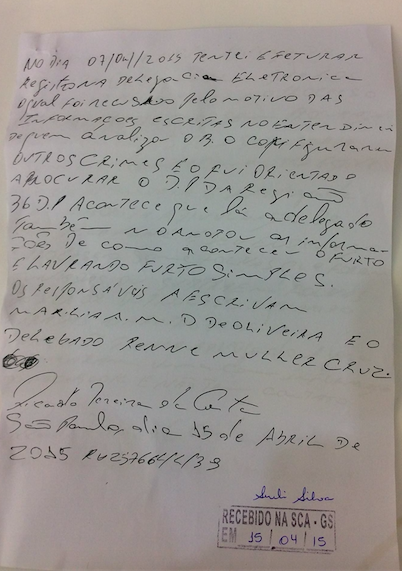 NO DIA 07/04//2015 TENTEI EFETURAR
REGISTRO NA DELEGACIA ELETRONICA
O QUAL FOI RECUSADO PELO MOTIVO DAS
INFORMAÇOES ESCRITAS NO ENTENDIMEN
DE QUEM ANALIZOU O B.O CONFIGURAREM
OUTROS CRIMES E O FUI ORIENTADO
A PROCURAR O D.P DA REGIÃO
36 D.P ACONTECE QUE LÁ A DELEGADO
TAMBÉM NO ANOTOU AS INFORMA
ÇOES DE COMO ACONTECEU O FURTO
E LAVRANDO FURTO SIMPLES.
OS RESPONSÁVEIS A ESCRIVAM
MARILIA A. M. D DE OLIVEIRA E O
DELEGADO RENNE MULLER CRUZ.
Ricardo Pereira da Costa
São Paulo, dia 15 de ABRIL DE
2015
Sueli Silva
RECEBIDO NA SCA - GS
EM 15 / 04 / 15